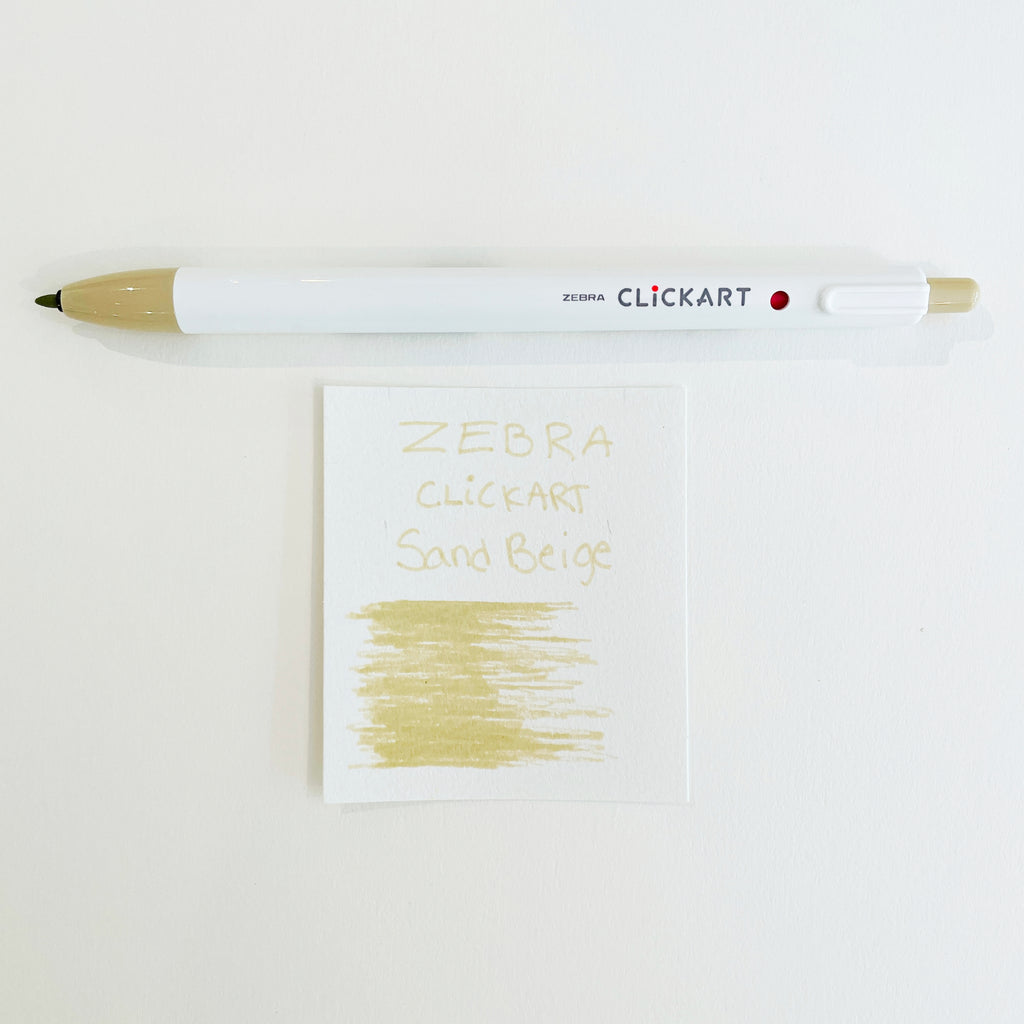 ZEBRA CLiCKART
ZEBRA
CLiCKART
Sand Beige